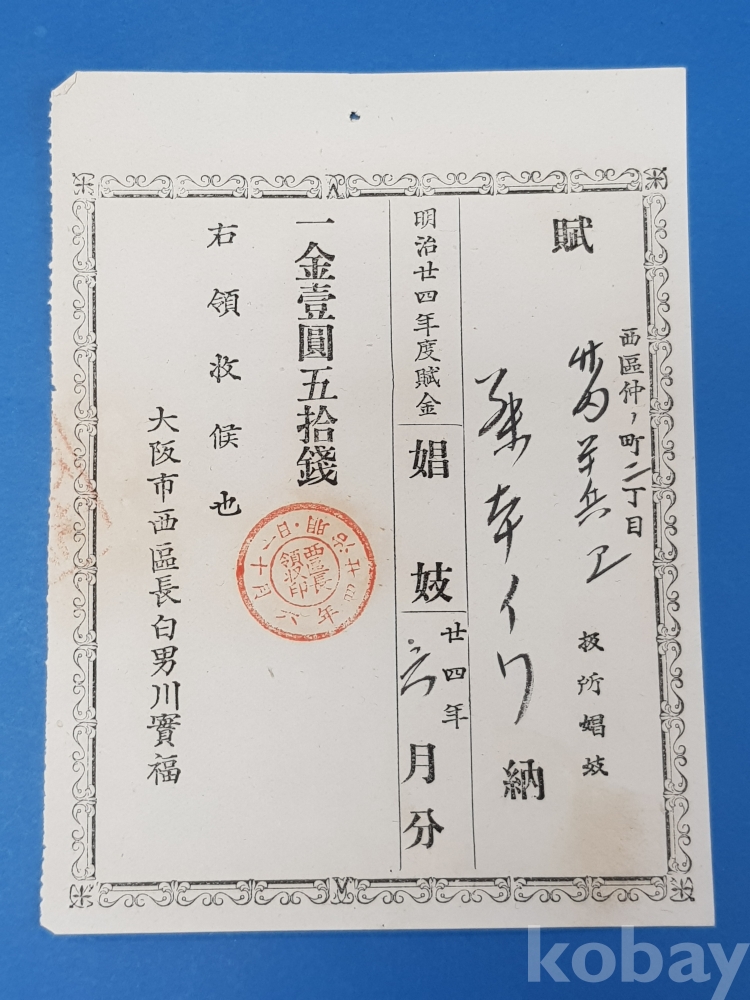 賦
西區仲ノ町二丁目
扱所娼妓
納
明治廿四年度賦金
娼妓
廿四年
六月分
一金壹圓五拾錢
右領收候也
明治廿四年六月十八日
西區長領收印
大阪市西區長白男川實福
kobay